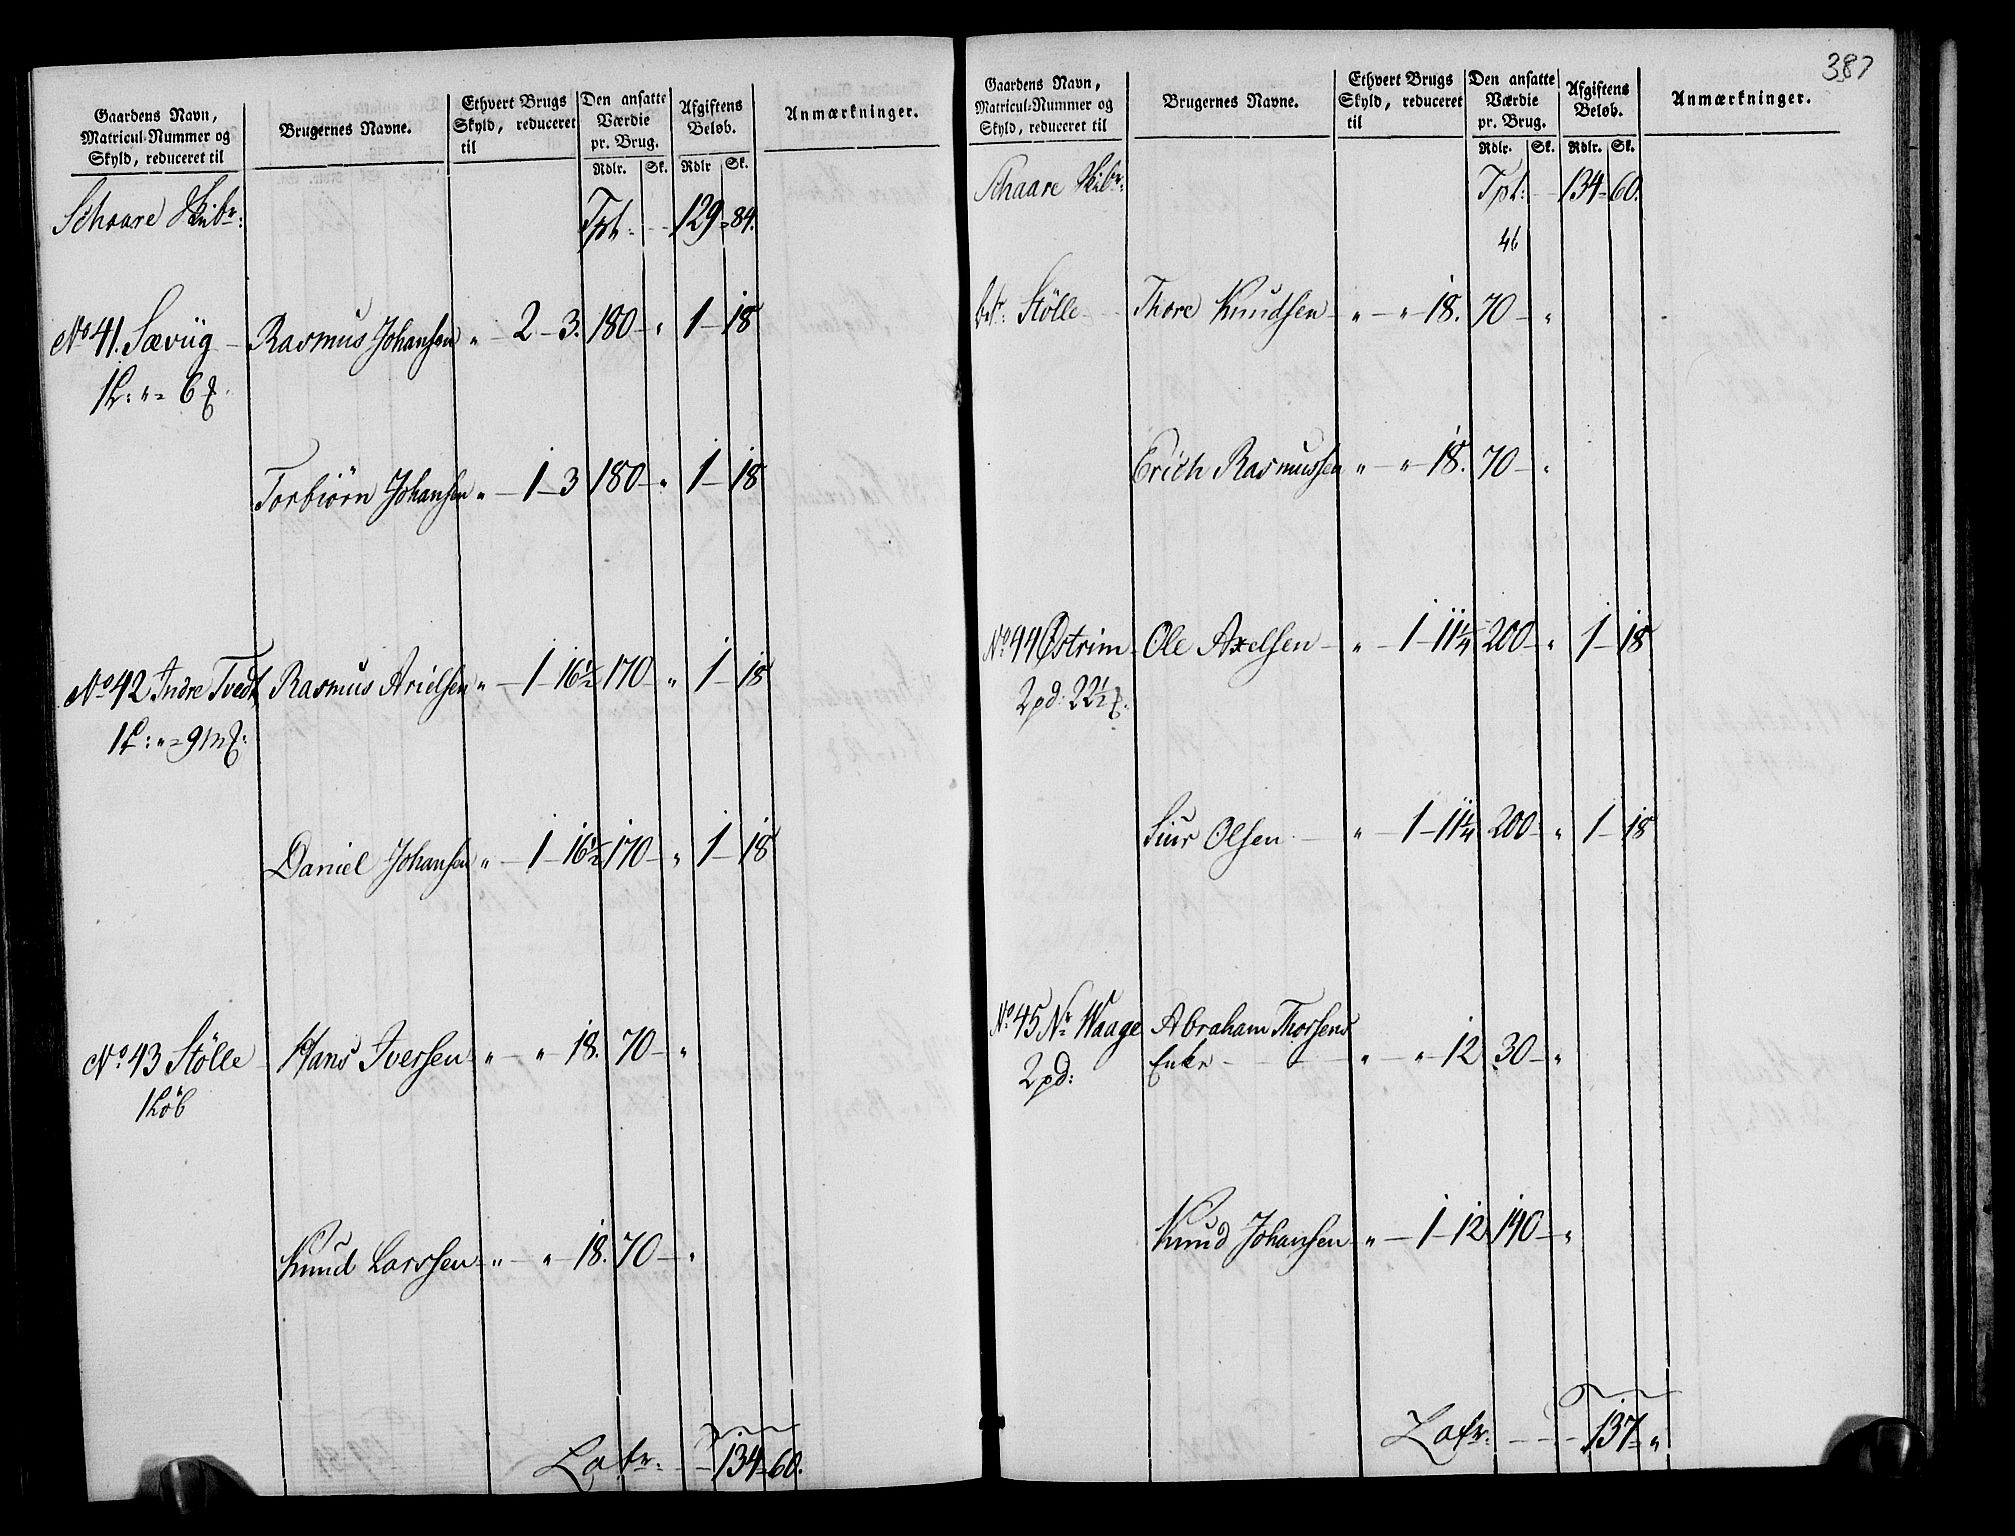 Gaardens Navn, Matricul-Nummer og Skyld, reduceret til | Brugernes Navne. | Ethvert Brugs Skyld, reduceret til | Den ansatte Værdie pr. Brug. | Afgiftens Beløb. | Anmærkninger.
Rdlr. | Sk. | Rdlr | Sk.
Schaare Skibr: Tpt: 129 = 84.
No 41. Sæviig Rasmus Johansen „ – 2 – 3. 180 – „ 1 – 18
1 L: „ = 6
Torbiørn Johansen „ – 1 – 3 180 – „ 1 – 18
No 42 Indre Tvedt Rasmus Arielsen „ – 1 – 16½ 170 – „ 1 – 18
1 L: „ = 9 m
Daniel Johansen „ – 1 – 16½ 170 – „ 1 – 18
No 43 Stölle Hans Iversen „ – „ – 18. 70 – „
1 Løb
Knud Larssen „ – „ – 18. 70 – „
Latr: 134 = 60.
387
Gaardens Navn, Matricul-Nummer og Skyld, reduceret til | Brugernes Navne. | Ethvert Brugs Skyld, reduceret til | Den ansatte Værdie pr. Brug. | Afgiftens Beløb. | Anmærkninger.
Rdlr. | Sk. | Rdlr. | Sk.
Schaare Skibr: Tpt: 134 = 60.
46
Stölle Thore Knudsen „ – „ – 18. 70 – „
Erich Rasmussen „ – „ – 18. 70 – „
No 44 Østrim Ole Axelsen „ – 1 – 11¼ 200 – „ 1 – 18
2 pd: 22½
Siur Olsen „ – 1 – 11¼ 200 – „ 1 – 18
No 45 Nr Waage Abraham Thorsens
2 pd: Enke „ – „ – 12 30 – „
Knud Johansen „ – 1 – 12 140 – „
Latr: 137 = „